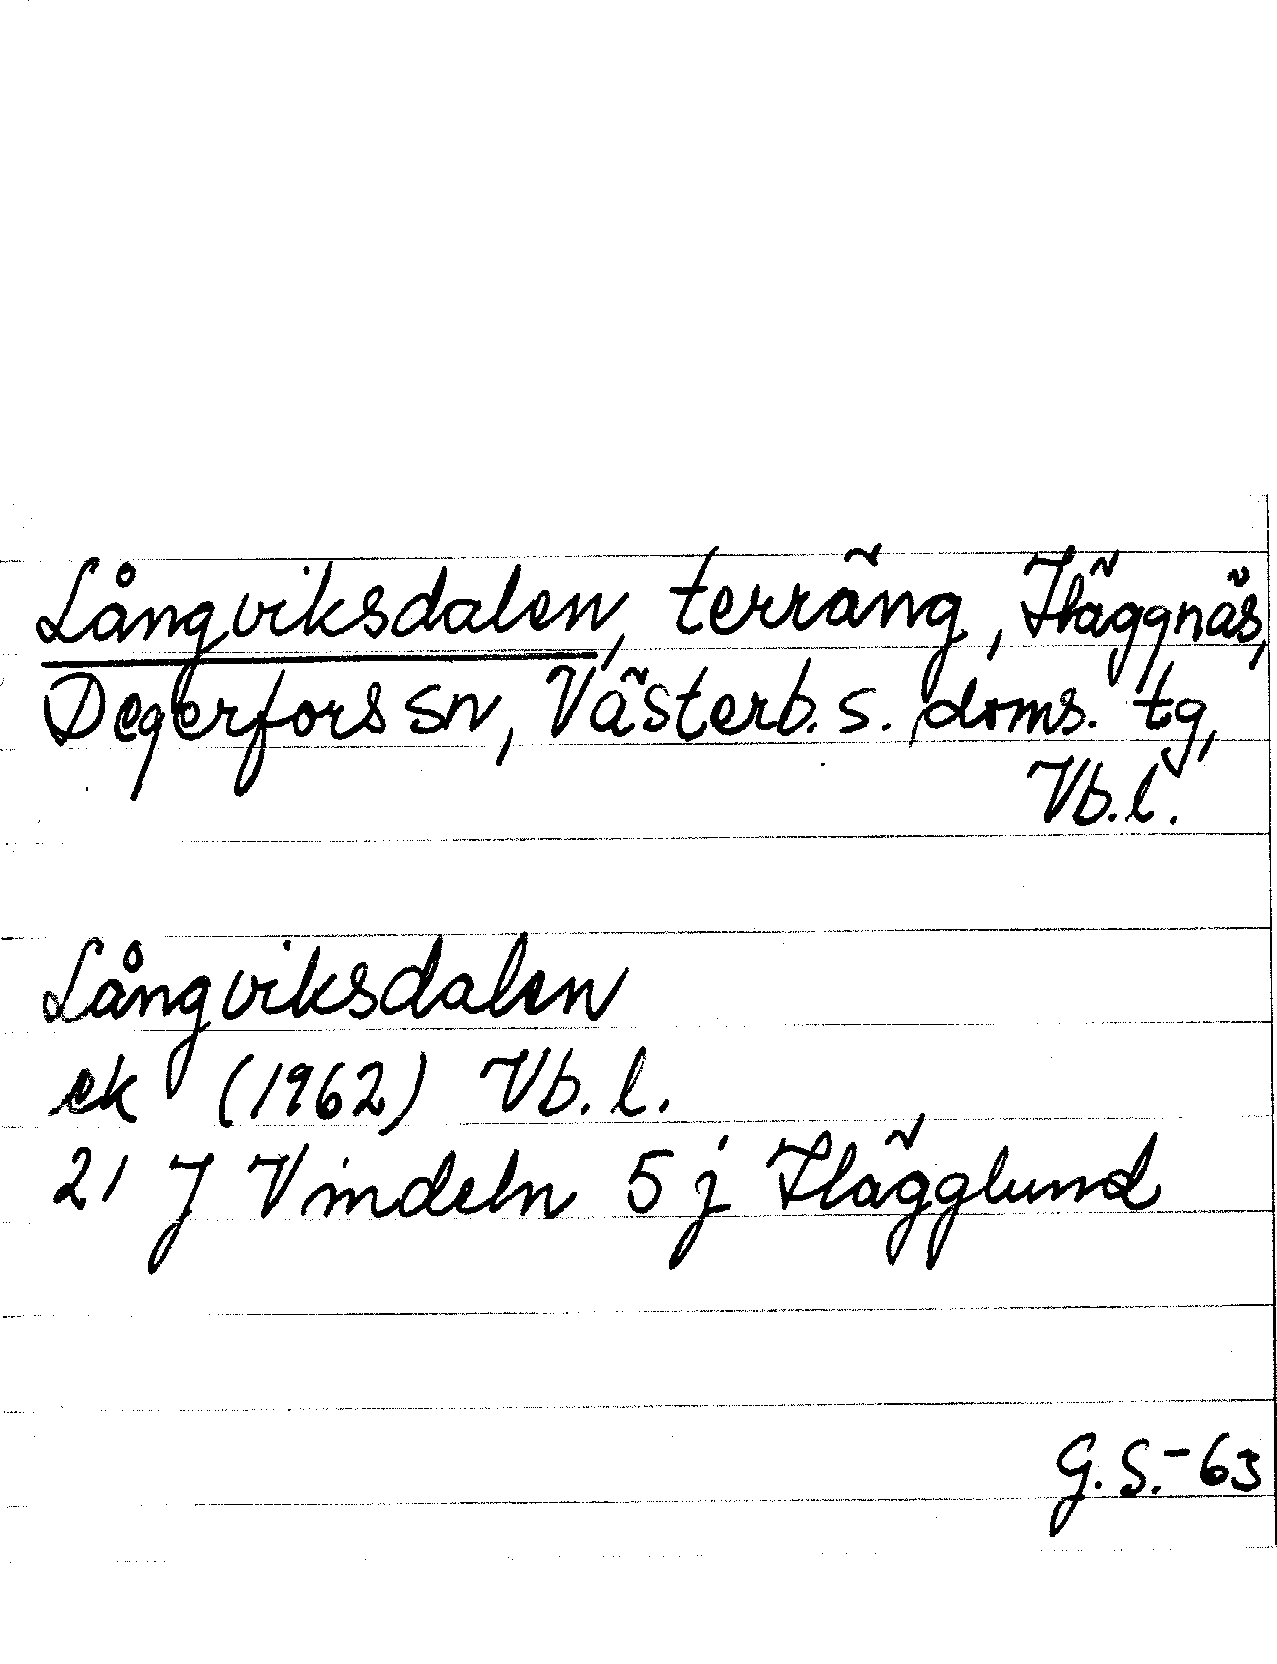 Långviksdalen, terräng, Häggnäs,
Degerfors sn, Västerb. s. doms. tg,
Vb.l.
Långviksdalen
ek (1962) Vb. l.
21 J Vindeln 5 j Hägglund
G.S.-63